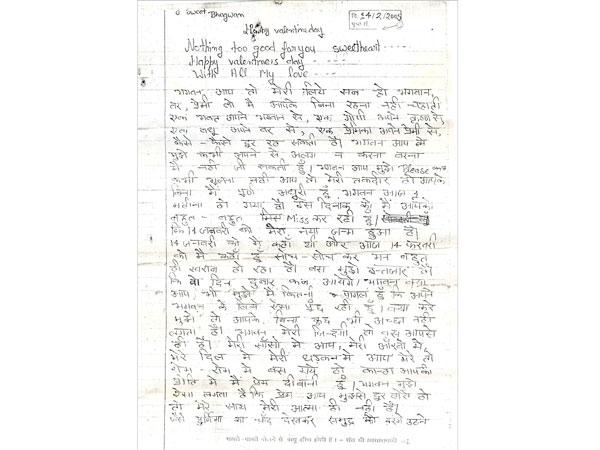 O Sweet Bhagwan
दि. 14/2/2005
Happy valentine day
Nothing too good for you sweetheart ----
Happy valentiners day ----
With All My love ----
भगवन आप तो मेरे लिये सब हो भगवान,
मैं आपके बिना रहना नहीं चाहती
एक भक्त अपने भगवान से, एक गोपी अपने कृष्ण से,
एक वधू अपने वर से, एक प्रेमिका अपने प्रेमी से,
कैसे - कैसे दूर रह सकती है। भगवन आप मे
मुझे कभी अपने से अलग न करना वरना
मैं नहीं जी सकती हूँ। भगवन आप मुझे Please
कभी भुलना नहीं आप तो मेरी तकदीर हो आपके
बिना मैं पूर्ण अधुरी हूँ भगवन आज 1
महीना हो गया है। इस दिनांक को मैं आपको
बहुत - बहुत मिस Miss कर रही हूँ।
कि 14 जनवरी को मेरा नया जन्म हुआ है।
14 जनवरी को मैं कहाँ थी और आज 14 फरवरी
को मैं कहाँ हूँ सोच - सोच कर मन बहुत
ही खराब हो रहा है। बस मुझे इन्तजार है
कि वो दिन दुबारा कब आयेगे। भगवन क्या
आप भी मुझे मैं कितनी पागल हूँ कि अपने
भगवन के लिये ऐसा पूछ रही हूँ। क्या करु
मुझे तो आपके बिना कुछ भी अच्छा नहीं
लगता है। भगवन मेरी जिन्दगी तो बस आपसे
ही है। मेरी साँसो मे आप, मेरी आँखो मे,
मेरे दिल मे मेरी धड़कन मे आप मेरे तो
रोम रोम मे बस गये हो कान्हा आपकी
प्रीत मे मैं प्रेम दीवानी हूँ। भगवन मुझे
ऐसा लगता है कि प्रेम आप मुझसे दूर गये हो
तो मेरे साथ मेरी आत्मा ही नही है।
जैसे पूर्णिमा का चाँद देखकर समुद्र की लहरे उठने